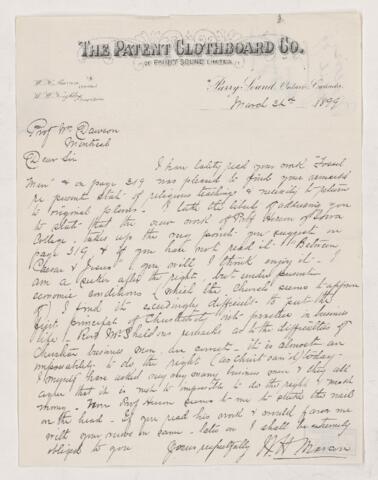 THE PATENT CLOTHBOARD CO.
OF PARRY SOUND LIMITED.
Parry Sound, Ontario, Canada,
March 1899
Prof Wm Dawson
Montreal
Dear Sir
I have lately read your work "Fossil
Men" & on page 319 was pleased to find your remarks
re present state of religious teachings & necessity to return
to original plans. I take the liberty of addressing you
to state that the new work of Prof Herron of Iowa
College, takes up the very point you suggest on
page 319 & if you have not read it "Between
Caesar & Jesus" you will I think enjoy it. I
am a seeker after the right, but under present
economic conditions (which the Church seems to approve
of) I find it exceedingly difficult to put the
first principal of Christianity into practice in business
life. Revd Mr Sheldons remarks as to the difficulties of
Christian business men, are correct - it is almost an
impossibility to do the right (as Christ said) today.
I myself have asked very very many business men & they all
agree that it is next to impossible to do the right & make
money. Now Prof Herron seems to me to strike the nail
on the head. If you read his work & would favor me
with your views on same later on I shall be extremely
obliged to you
Yours respectfully